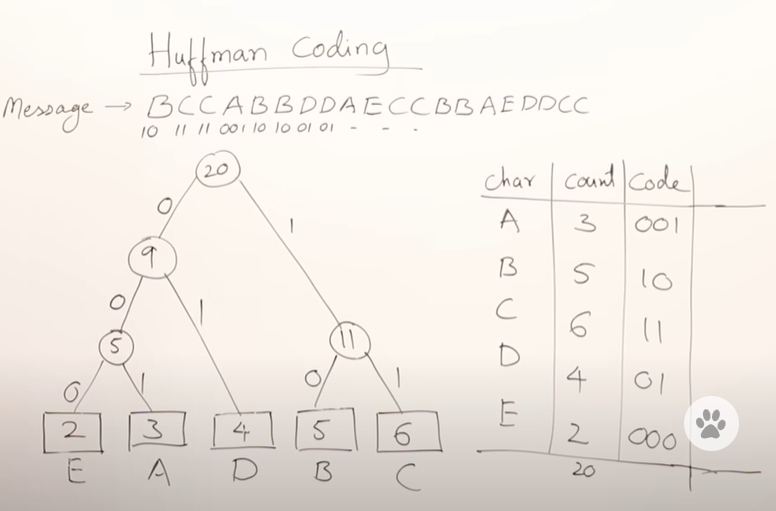 Huffman Coding
Message → BCCABBDDAECCBBAEDDCC
10 11 11 001 10 10 01 01 - - .
20
0 1
9
0 1
5 11
0 1 0 1
2 3 4 5 6
E A D B C
Char Count Code
A 3 001
B 5 10
C 6 11
D 4 01
E 2 000
20